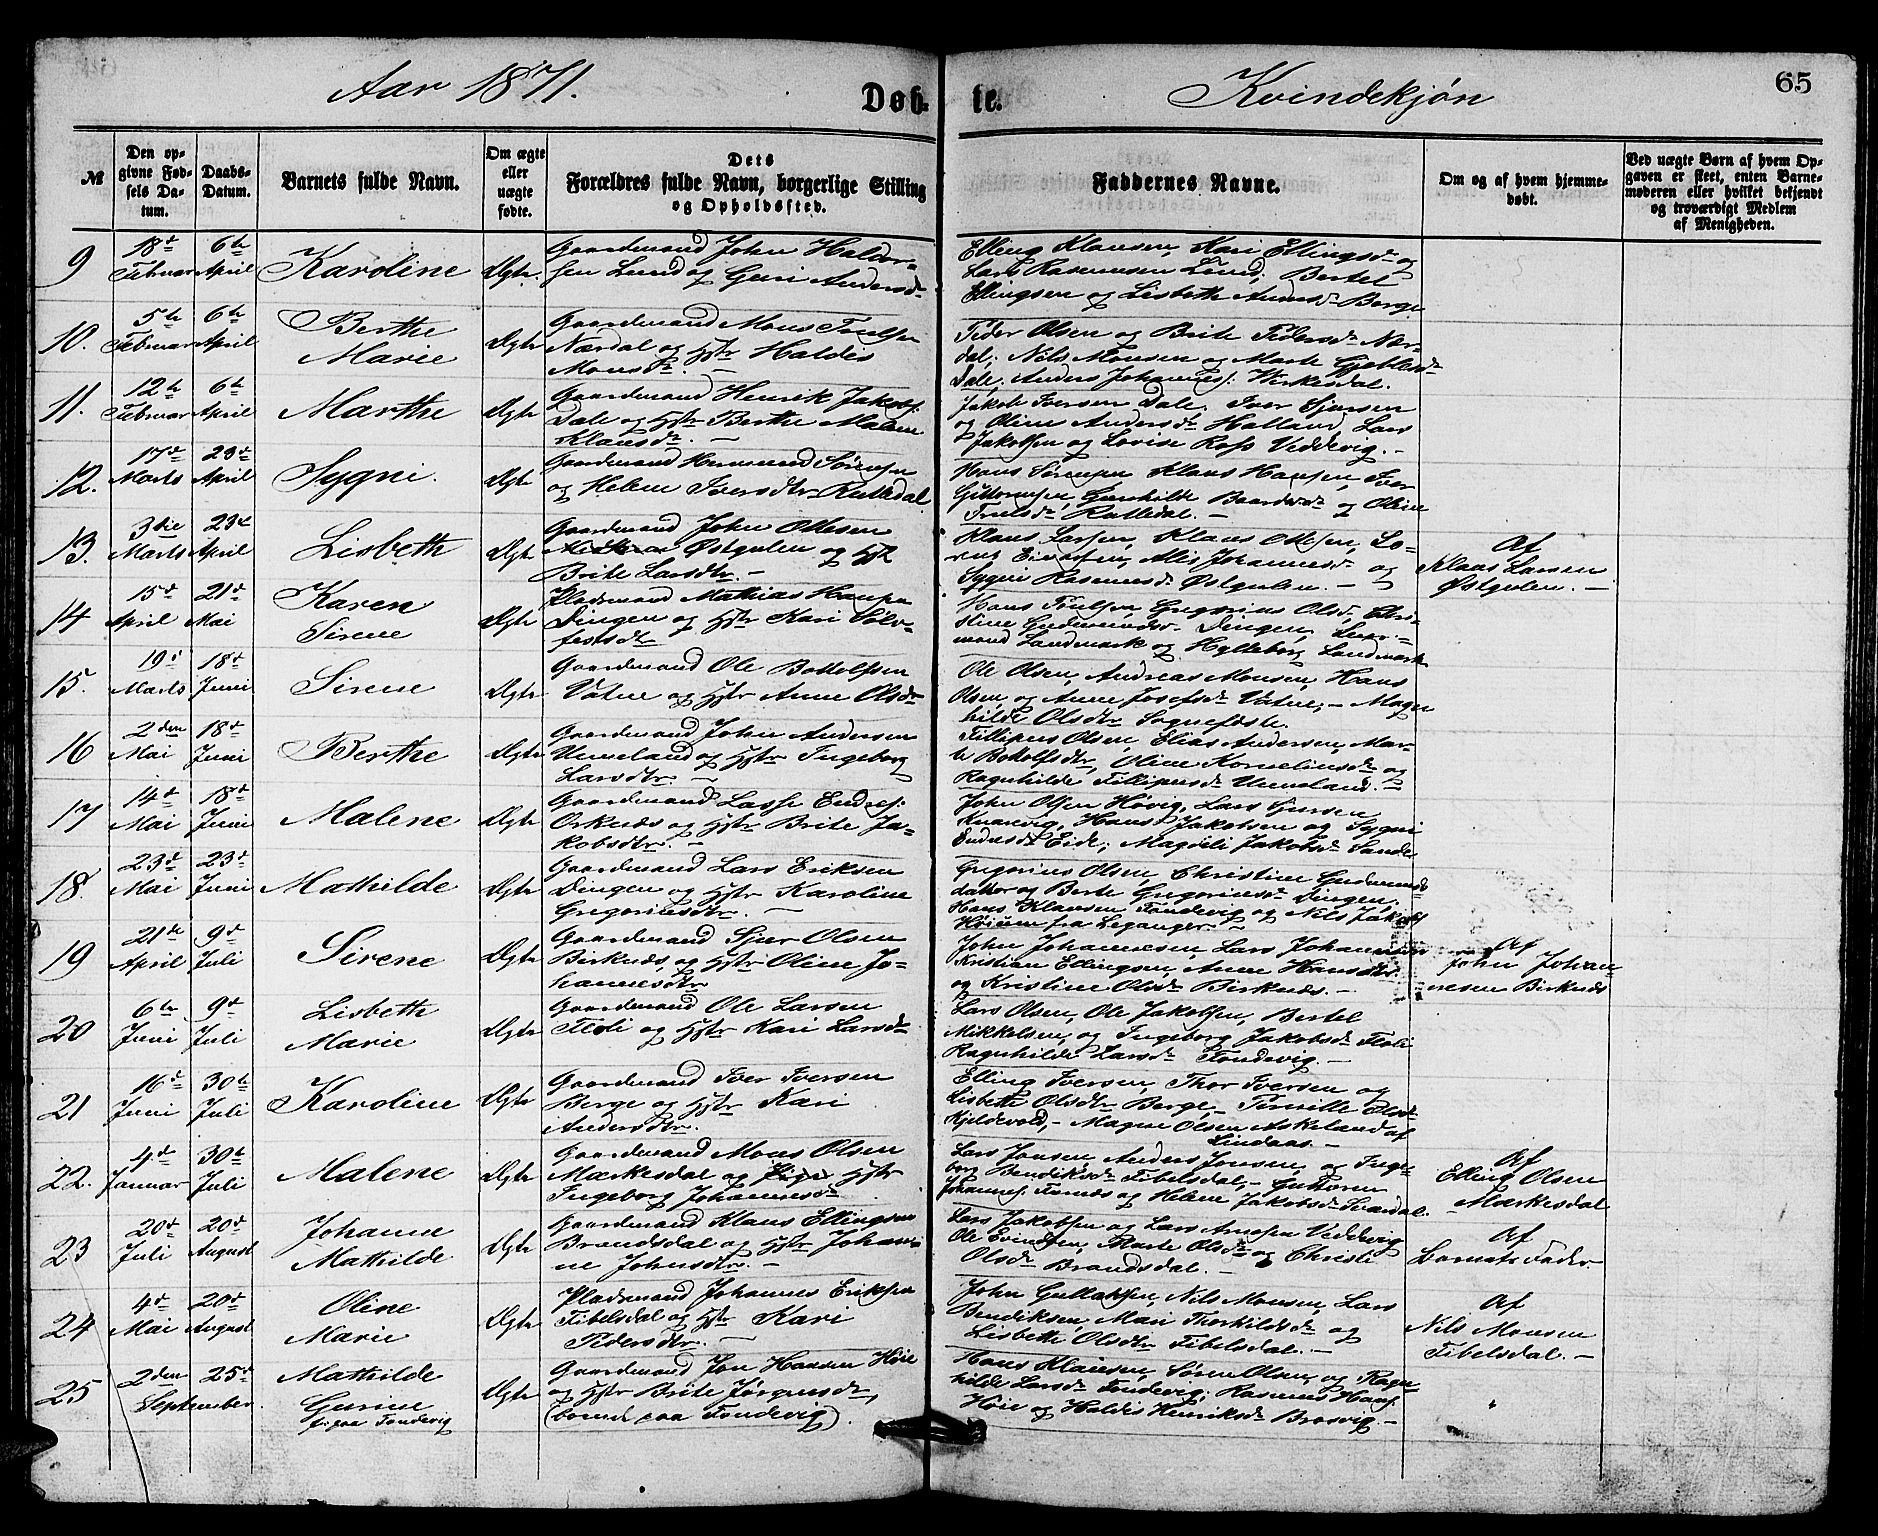 Aar 1871.
Døb-
te.
Kvindekjøn
65
№
Den op-
givne Fød-
sels Da-
tum.
Daabs-
Datum.
Barnets fulde Navn.
Om ægte
eller
uægte
fødte.
Dets
Forældres fulde Navn, borgerlige Stilling
og Opholdssted.
Faddernes Navne.
Om og af hvem hjemme-
døbt.
Ved uægte Børn af hvem Op-
gaven er skeet, enten Barne-
moderen eller hvilket bekjendt
og troværdigt Medlem
af Menigheden.
9
18de
Februar
6te
April
Karoline
Ægte.
Gaardmand John Haldor-
sen Lund og Guri Andersdr
Elling Klausen, Kari Ellingsdr og
Lars Rasmussen Lund, Bertel
Ellingsen og Lisbeth Andersdr Berge
10.
5te
Februar
6te
April
Berthe
Marie
Ægte
Gaardmand Mons Truelsen
Nærdal og Hstr Haldis
Monsdr. —
Peder Olsen og Brite Pedersdr Nær-
dal, Nils Monsen og Marte
Dale, Anders Johannes. Virkesdal.
11.
12te
Februar
6te
April
Marthe
Ægte
Gaardmand Henrik Jakobs.
Dale og Hstr Berthe Malene
Klausdr. —
Jakob Iversen Dale, Iver Sjursen
og Oline Andersdr Halland, Lars
Jakobsen og Lovise Ross Veddevig. —
12.
17de
Marts
23de
April
Sygni.
Ægte
Gaardmand Hermund Sørensen
og Helene Iversdtr Rutledal
Hans Sørensen, Klaus Hansen, Iver
Guttormsen, Gunhilde Baardsdr og Oline
Truelsdr Rutledal. —
13.
3die
Marts
23de
April
Lisbeth
Ægte
Gaardmand John Ottesen
Østgulen og Hst
Brite Larsdtr. —
Klaus Larsen, Klaus Ottesen, Lo-
rens Einarsen, Alis Johannesdr og
Sygni Rasmusdr Østgulen. —
Af
Klaus Larsen
Østgulen. —
14
15de
April
21de
Mai
Karen
Sirene
Ægte
Pladsmand Mathias Hansen
Dingen og Hstr Kari Sølv-
festsdtr
Hans Truelsen, Gregorius Olsdr, Chri-
stine Gudmundsdr Dingen,
mund Landmark og Hylleborg Landmark
15.
19de
Marts
18de
Juni
Sirene
Ægte
Gaardmand Ole Bottolfsen
Vatne og Hstr Anne Olsdr
Ole Olsen, Andreas Monsen, Hans
Olsen, og Anne Josefsdr Vatne, — Magn
hilde Olsdtr Sognefæste.
16
2den
Mai
18de
Juni
Berthe
Ægte
Gaardmand John Andersen
Unneland og Hstr Ingeborg
Larsdtr. —
Fillipus Olsen, Elias Andersen, Mar-
te Bottolfsdtr, Oline Korneliusdr og
Ragnhilde Fillipusdr Unneland. —
17
14de
Mai
18de
Juni
Malene
Ægte
Gaardmand Lasse Endres.
Orknæs og Hstr Brite Ja-
kobsdtr. —
John Olsen Høvig, Lars Sjursen
Knarvig, Hans Jakobsen og Sygni
Endresdr Eide, Magdeli Jakobsdr Sande
18.
23de
Mai
23de
Juni
Mathilde
Ægte
Gaardmand Lars Eriksen
Dingen og Hstr Karoline
Gregoriusdtr. —
Gregorius Olsen, Christine Gudmunds-
datter og Berte Gregoriusdr Dingen,
Hans Klausen Tondevig og Nils Jakobs
Høium fra Leganger. —
19
21de
April
9de
Juli
Sirene
Ægte
Gaardmand Sjur Olsen
Birknæs og Hstr Oline Jo-
hannesdtr
John Johannesen, Lars Johannesen
Kristian Ellingsen, Anne Hansdtr
og Kristine Olsdr Birknæs. —
Af
John Johan
nesen Birknæs
20
6te
Juni
9de
Juli
Lisbeth
Marie
Ægte
Gaardmand Ole Larsen
Floli og Hstr Kari Larsdr
Lars Olsen, Ole Jakobsen, Bertel
Mikkelsen, og Ingeborg Jakobsdr Floli
Ragnhilde Larsdr Tondevig. —
21
16de
Juni
30te
Juli
Karoline
Ægte
Gaardmand Iver Iversen
Berge og Hstr Kari
Andersdtr.
Elling Iversen, Thor Iversen og
Lisbeth Olsdtr Berge, — Pernille Olsdr
Kjeldevold, — Magne Olsen Askeland af
Lindaas —
22.
4de
Januar
30te
Juli
Malene
Ægte
Gaardmand Mons Olsen
Mærkesdal og Hstr
Ingeborg Johannesdr
Lars Jonsen, Anders Jonsen, og Inge-
borg Bendiksdr Tibelsdal, — Guttorm
Johannes. Fornæs og Helene Jakobsdr Sværdal.
Af
Elling Olsen
Mærkesdal
23
20de
Juli
20de
August
Johanne
Mathilde
Ægte
Gaardmand Klaus Ellingsen
Brandsdal og Hstr Johan-
ne Johnsdtr. —
Lars Jakobsen og Lars Arnesen Veddevig
Ole Evindsen, Marte Olsdr og Christi
Olsdr Brandsdal. —
Af
Barnets Fader
24
4de
Mai
20de
August
Oline
Marie
Ægte
Pladsmand Johannes Eriksen
Tibelsdal og Hstr Kari
Pedersdtr. —
John Gullaksen, Nils Monsen, Lars
Bendiksen, Mari Thorkildsdr og
Lisbeth Olsdtr Tibelsdal. —
Af
Nils Monsen
Tibelsdal. —
25
2den
25de
September
Mathilde
Gurine
f. paa Tondevig
Ægte
Gaardmand Jon Hansen Høie
og Hstr Brite Jørgensdr,
(boende paa Tondevig).
Hans Klausen, Søren Olsen, og Ragn-
hilde Larsdr Tondevig, Rasmus Hans.
Høie og Haldis Henriksdr Brosvig. —
"